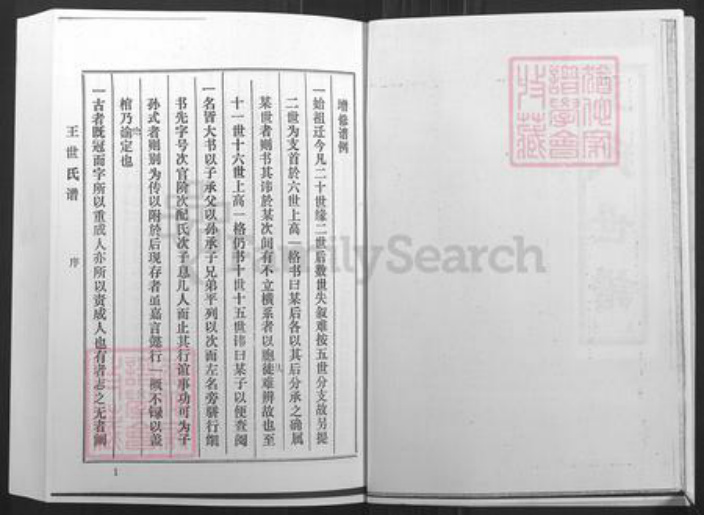 增修谱例
一始祖迁今凡二十世缘二世后数世失叙难按五世分支故另提
二世为支首於六世上高一格书曰某后各以其后分承之滴属
某世者则书其讳於某次间有不立横系者以胞徒难辨故也至
十一世十六世上高一格仍书十世十五世讳曰某子以便查阅
一名皆大书以子承父以孙承子兄弟平列以次而左名旁骈行细
书先字号次官阶次配氏次子息几人而止其行谊事功可为子
孙式者则别为传以附於后现存者虽嘉言懿行一概不录以盖
棺乃论定也
一古者既冠而字所以重成人亦所以责成人也有者志之无者阙
王世氏谱
序
1
FamilySearch